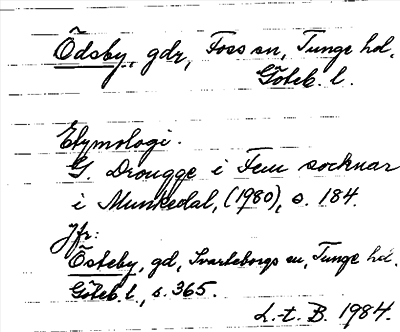 Ödsby, gdr, Foss sn, Tunge hd.
Göteb. l.
Etymologi.
G. Drougge i Fem socknar
i Munkedal, (1980), s. 184.
Jfr:
Östeby, gd, Svarteborgs sn, Tunge hd.
Göteb. l., s. 365.
L.t. B. 1984.